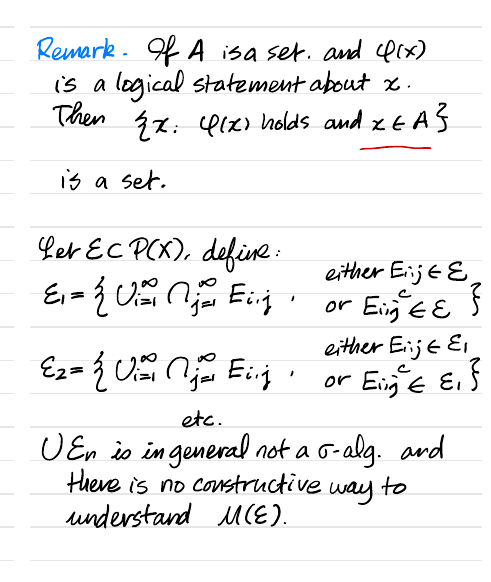 Remark. If A is a set. and φ(x)
is a logical statement about x.
Then {x: φ(x) holds and x ∈ A}
is a set.
Let ℰ ⊂ P(X), define:
ℰ₁ = { ∪ᵢ₌₁^∞ ∩ⱼ₌₁^∞ Eᵢ,ⱼ , either Eᵢ,ⱼ ∈ ℰ
or Eᵢ,ⱼᶜ ∈ ℰ }
ℰ₂ = { ∪ᵢ₌₁^∞ ∩ⱼ₌₁^∞ Eᵢ,ⱼ , either Eᵢ,ⱼ ∈ ℰ₁
or Eᵢ,ⱼᶜ ∈ ℰ₁ }
etc.
∪ ℰₙ is in general not a σ-alg. and
there is no constructive way to
understand M(ℰ).